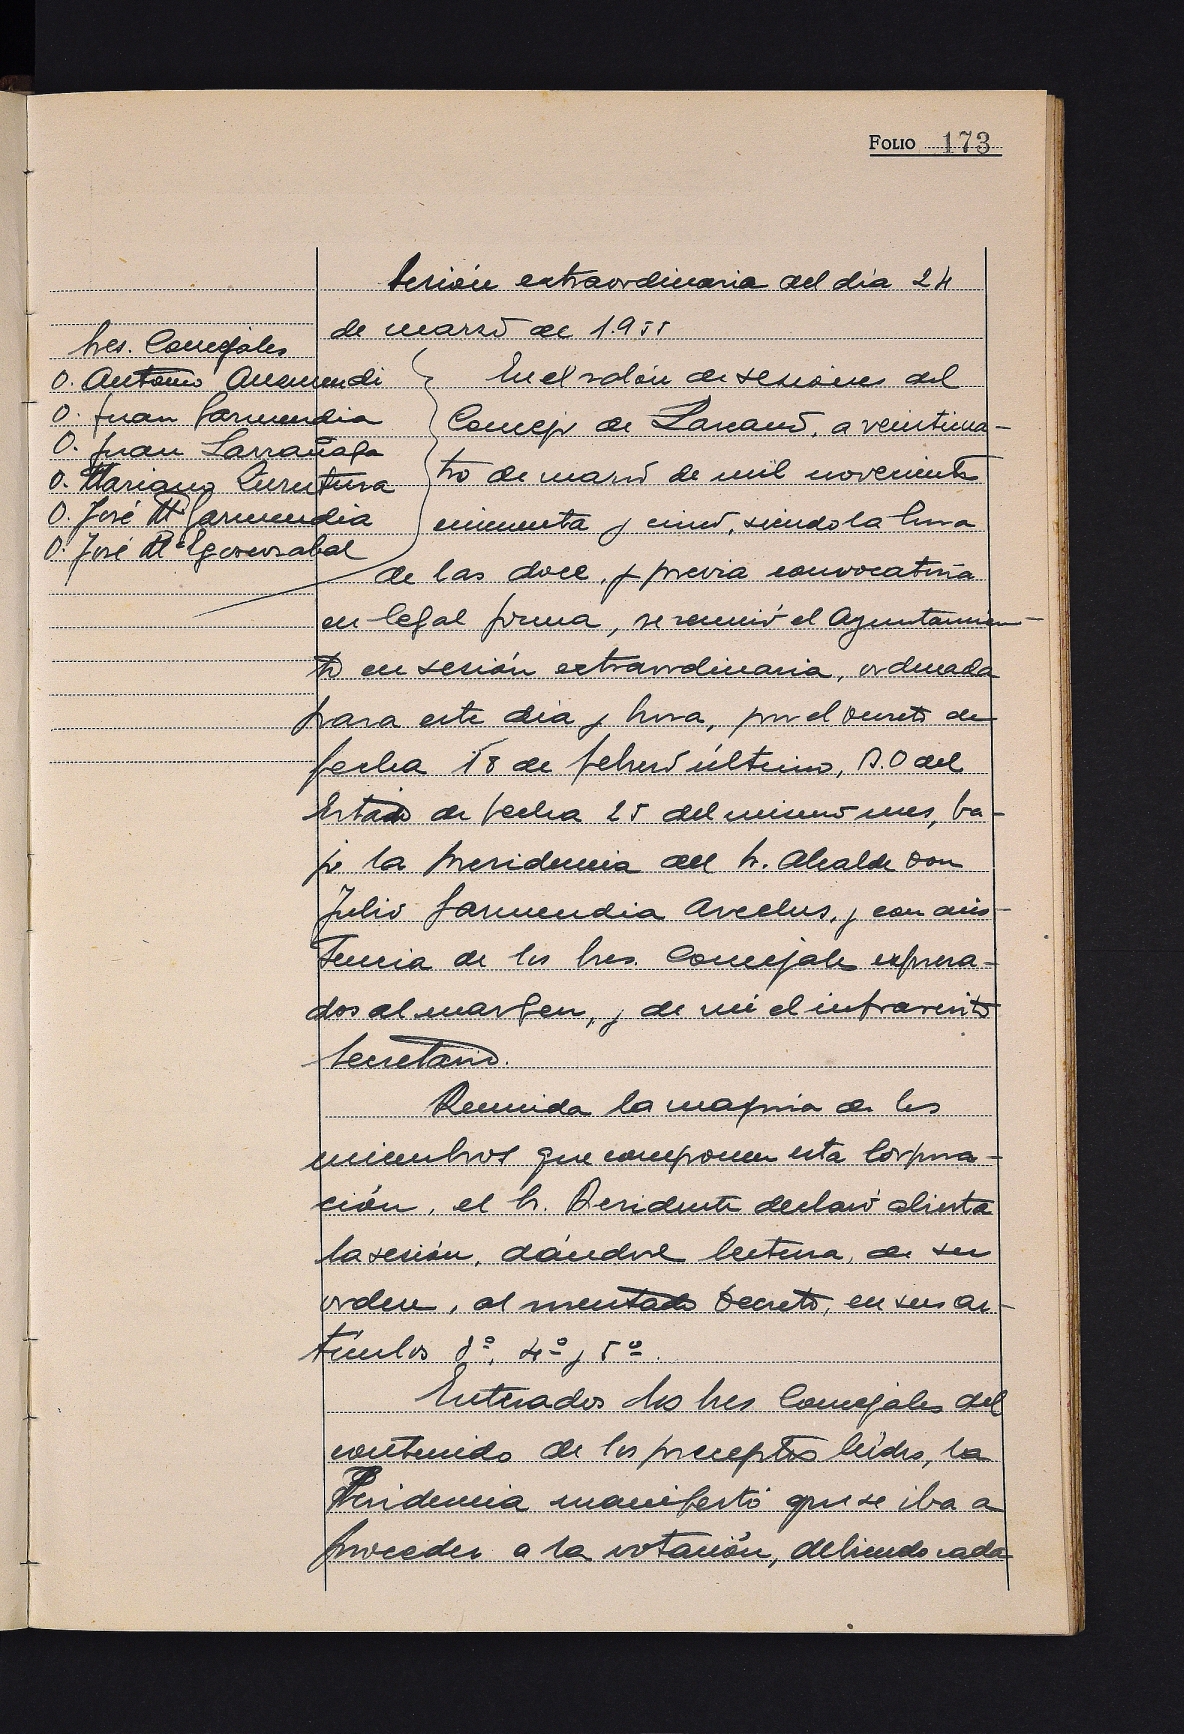 FOLIO 173
Sesión extraordinaria del día 24
de marzo de 1.955
Sres. Concejales
D. Antonio Auzmendi
D. Juan Garmendia
D. Juan Larrañaga
D. Mariano
D. José Mª Garmendia
D. José Mª Igorosabal
En el salón de sesiones del
Concejo de Lazcano, a veinticua-
tro de marzo de mil novecientos
cincuenta y cinco, siendo la hora
de las doce, y previa convocatoria
en legal forma, se reunió el Ayuntamien-
to en sesión extraordinaria, ordenada
para este día y hora, por el Decreto de
fecha 18 de febrero último, B.O del
Estado de fecha 25 del mismo mes, ba-
jo la presidencia del Sr. Alcalde Don
Julio Garmendia Arcelus, y con asis-
tencia de los Sres. Concejales expresa-
dos al margen, y de mí el infrascrito
Secretario.
Reunida la mayoría de los
miembros que componen esta Corpora-
ción, el Sr. Presidente declaró abierta
la sesión, dándose lectura, de su
orden, al mentado Decreto, en sus ar-
tículos 4º y 5º.
Enterados los Sres Concejales del
contenido de los preceptos leídos, la
Presidencia manifestó que se iba a
proceder a la votación, debiendo cada